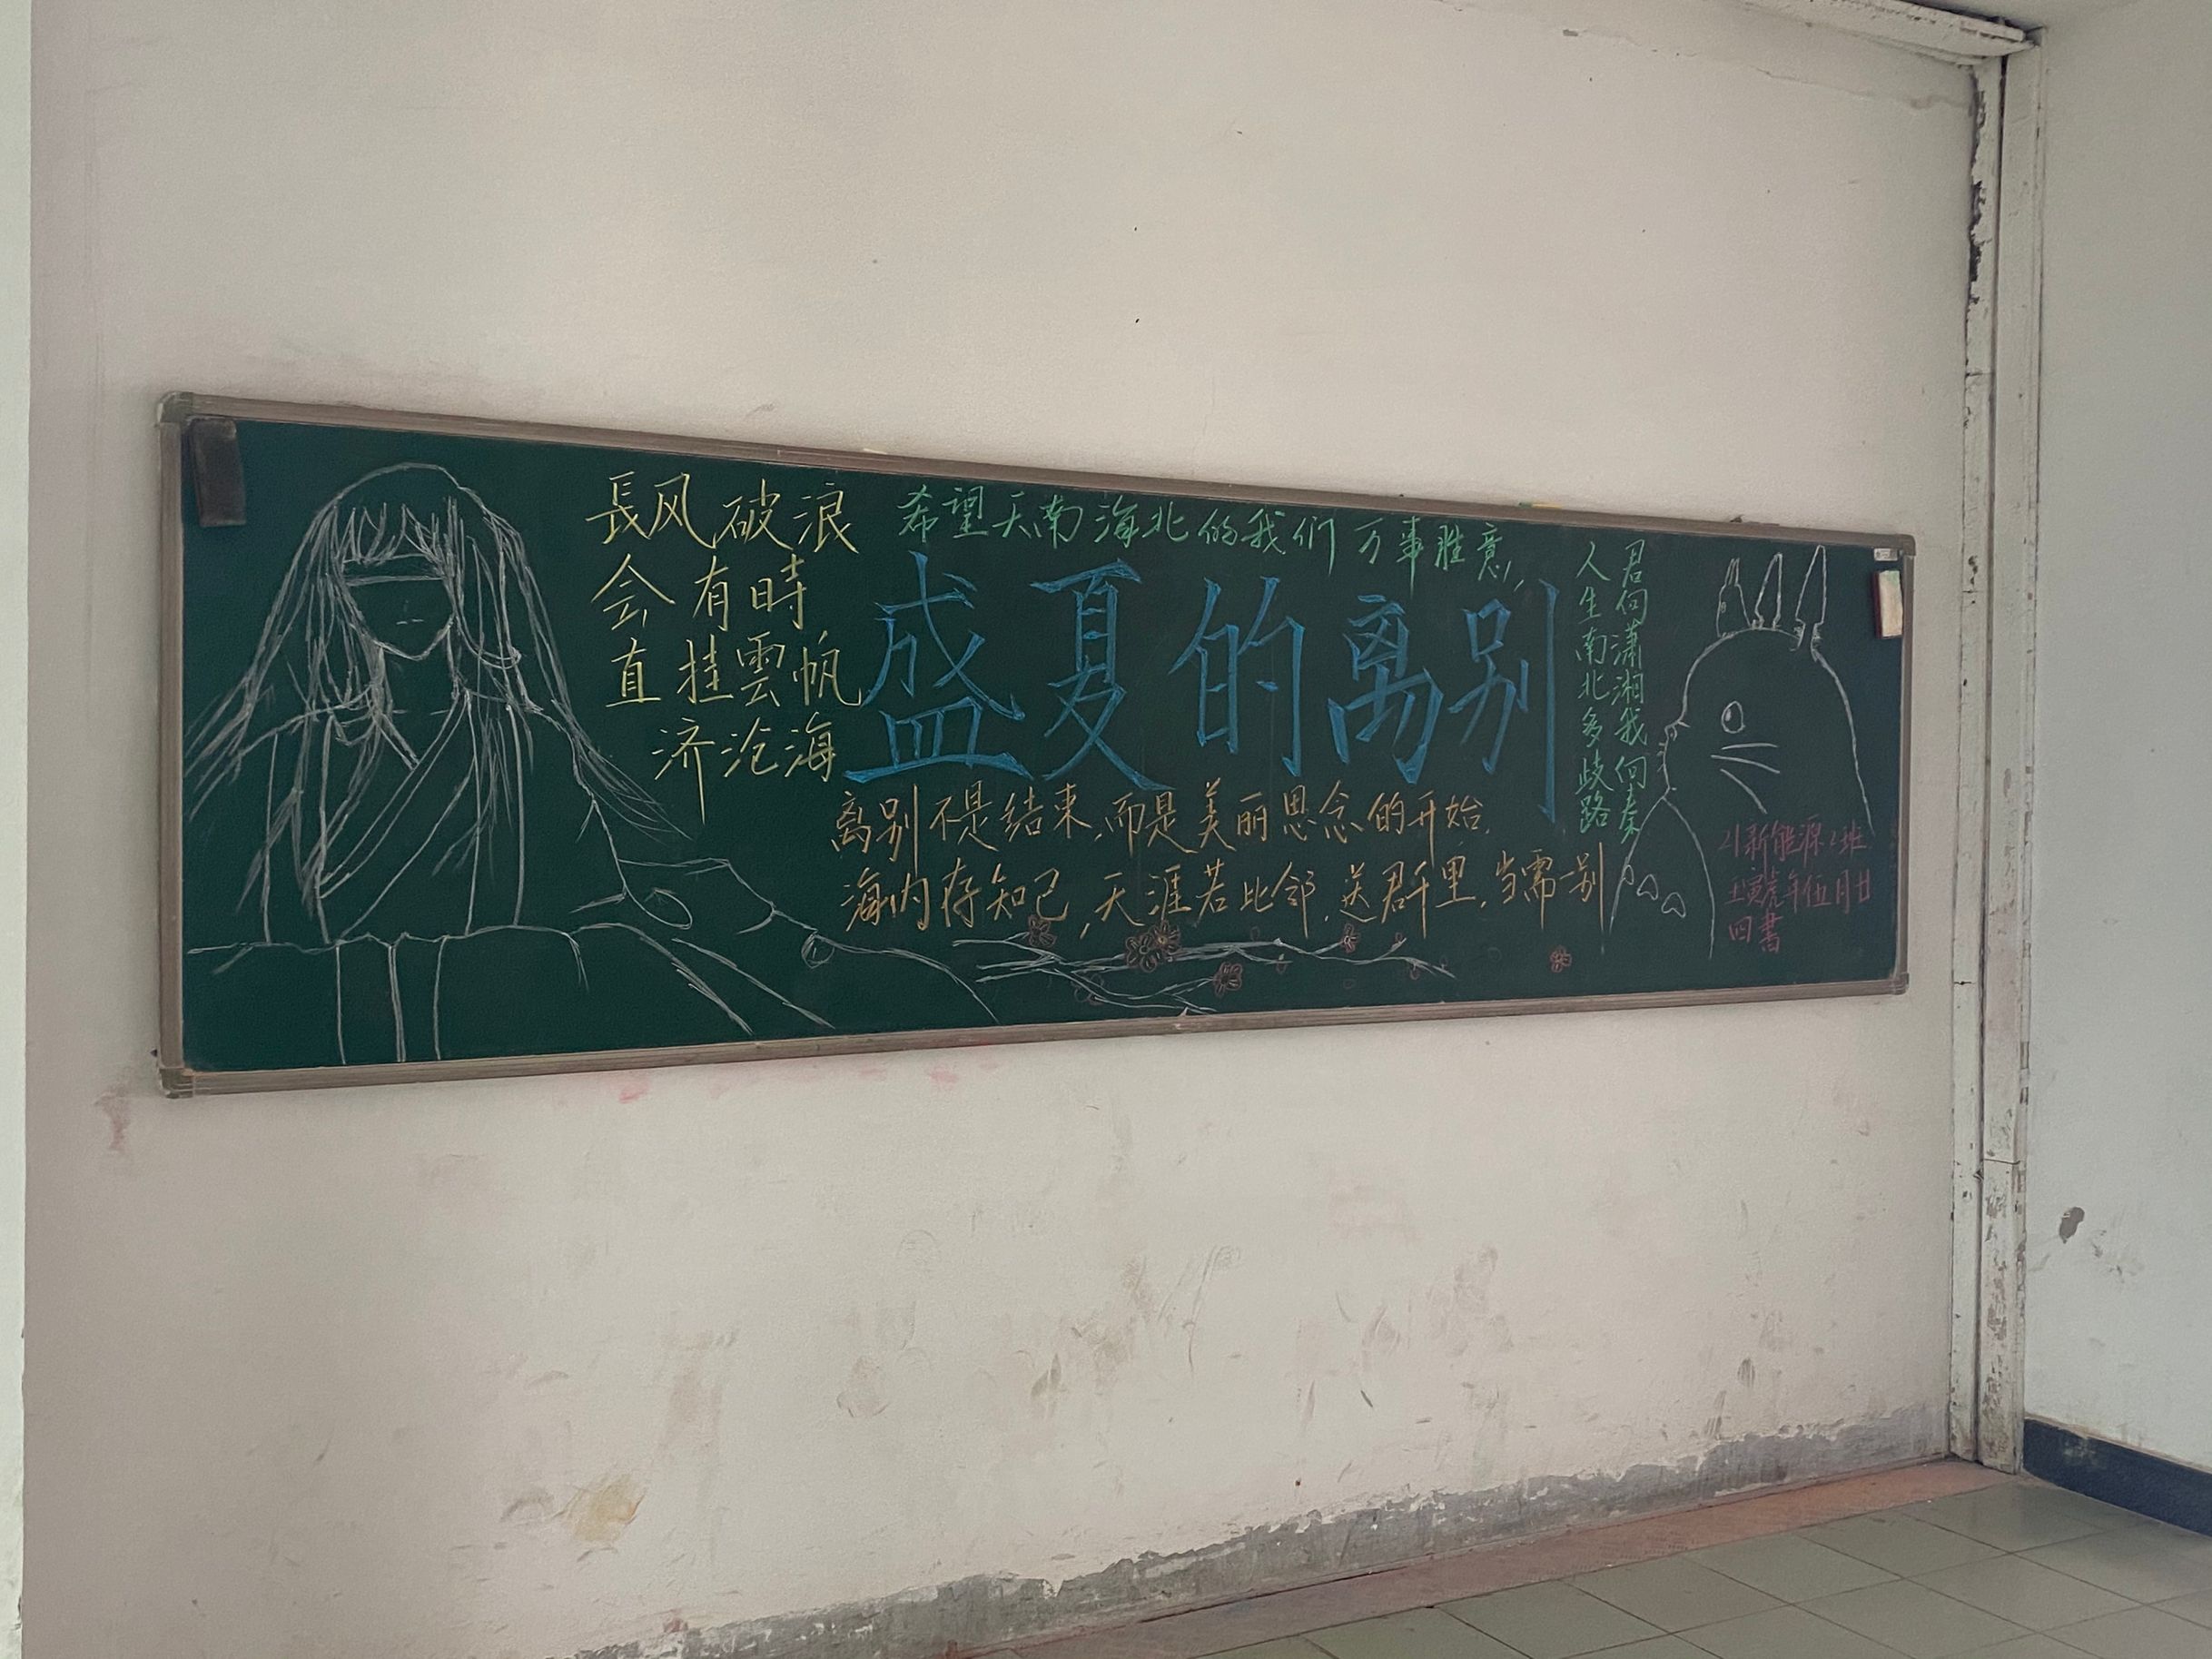 長风破浪
会有時
直挂雲帆
济沧海
希望天南海北的我们万事胜意,
盛夏的离别
离别不是结束,而是美丽思念的开始.
海内存知己,天涯若比邻.送君千里,当需一别
君向潇湘我向秦
人生南北多歧路
21新能源2班
壬寅虎年伍月廿
四書